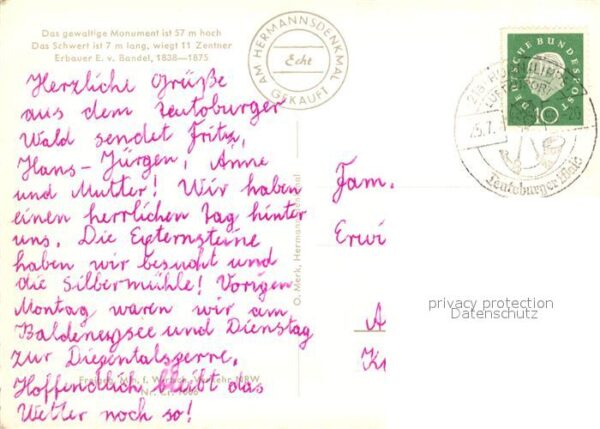 Das gewaltige Monument ist 57 m hoch
Das Schwert ist 7 m lang, wiegt 11 Zentner
Erbauer E. v. Bandel, 1838—1875
AM HERMANNSDENKMAL
Echt
GEKAUFT
DEUTSCHE BUNDESPOST
10
Teutoburger Wald
Herzliche Grüße
aus dem Teutoburger
Wald sendet Fritz,
Hans-Jürgen, Anne
und Mutter! Wir haben
einen herrlichen Tag hinter
uns. Die Externsteine
haben wir besucht und
die Silbermühle! Vorigen
Montag waren wir am
Baldeneysee und Dienstag
zur Diepentalsperre.
Hoffendlich bleibt das
Wetter noch so!
Fam.
Erwi
A
K
O. Merk, Hermannsdenkmal
privacy protection
Datenschutz